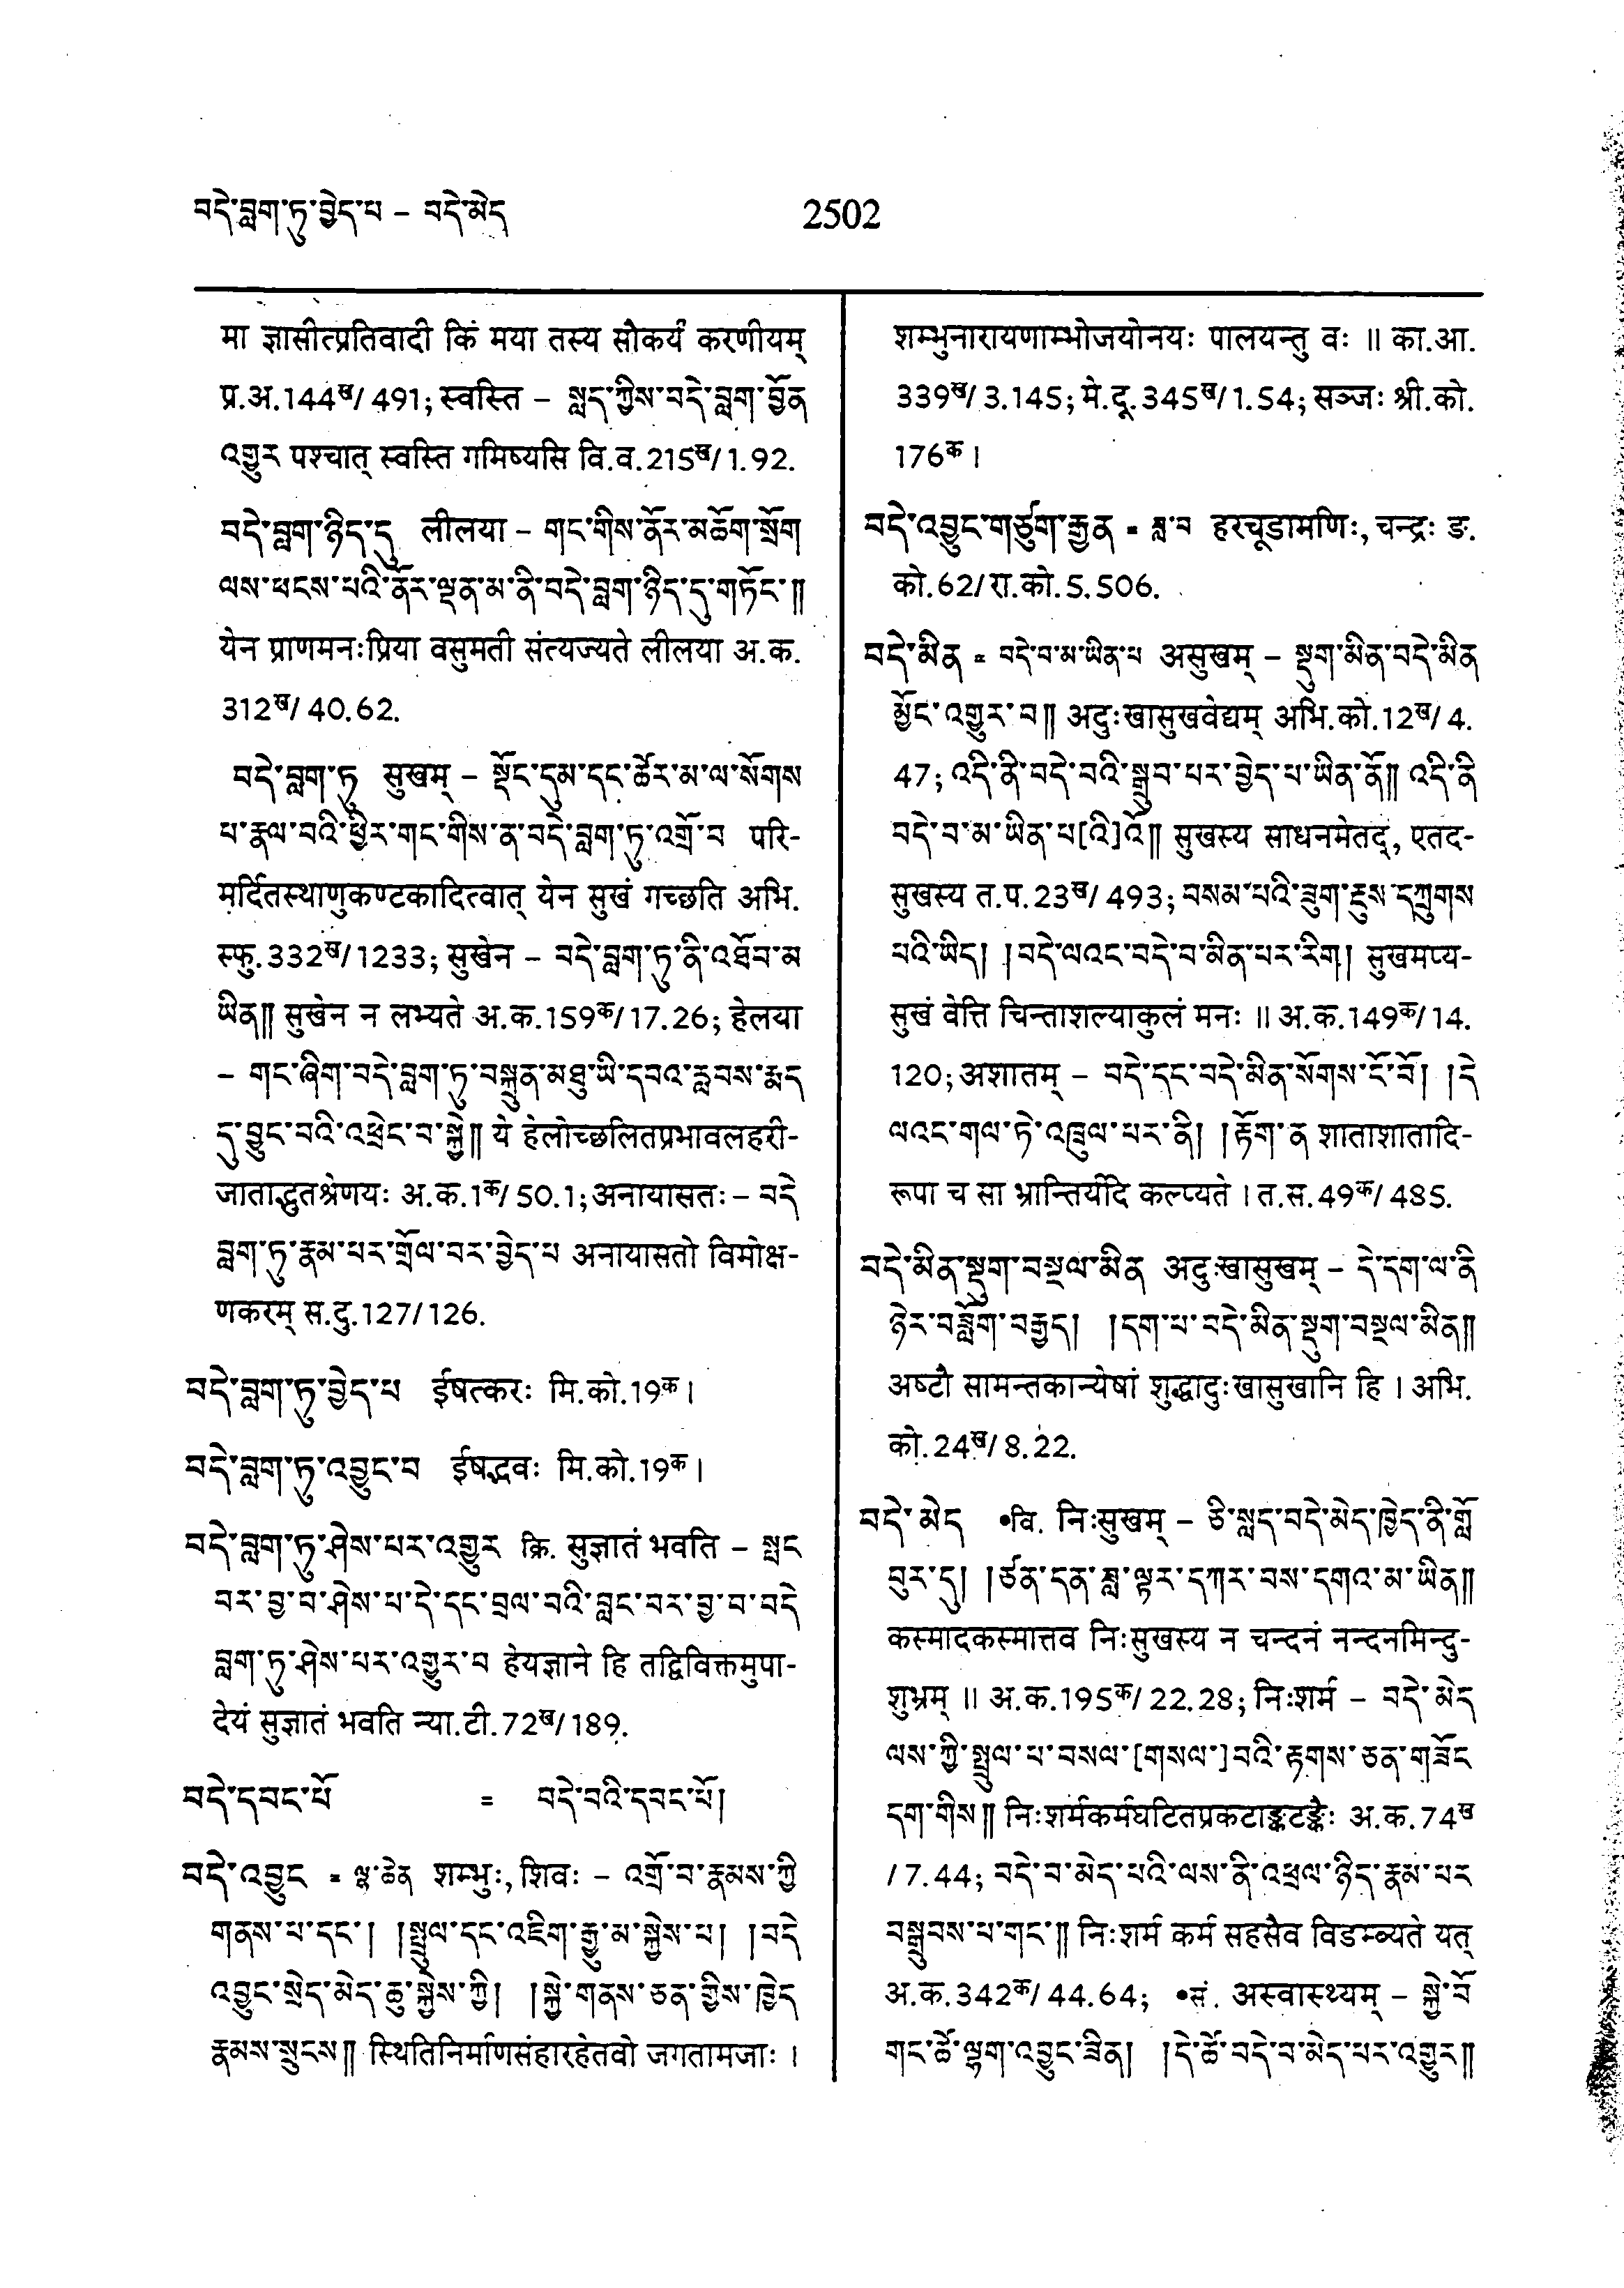 བདེ་བླག་ཏུ་བྱེད་པ – བདེ་མེད
2502
मा ज्ञासीत्प्रतिवादी किं मया तस्य सौकर्यं करणीयम्
प्र.अ.144ख/491; स्वस्ति – སླད་ཀྱིས་བདེ་བླག་བྱོན
འགྱུར पश्चात् स्वस्ति गमिष्यसि वि.व.215ख/1.92.
བདེ་བླག་ཉིད་དུ लीलया – གང་གིས་ནོར་མཆོག་སྲོག
ལས་ཕངས་པའི་ནོར་ལྡན་མ་ནི་བདེ་བླག་ཉིད་དུ་གཏོང་༎
येन प्राणमनःप्रिया वसुमती संत्यज्यते लीलया अ.क.
312ख/40.62.
བདེ་བླག་ཏུ सुखम् – སྡོང་དུམ་དང་ཚེར་མ་ལ་སོགས
པ་རྣལ་བའི་ཕྱིར་གང་གིས་ན་བདེ་བླག་ཏུ་འགྲོ་བ परि-
मर्दितस्थाणुकण्टकादित्वात् येन सुखं गच्छति अभि.
स्फु.332ख/1233; सुखेन – བདེ་བླག་ཏུ་ནི་འཐོབ་མ
ཡིན༎ सुखेन न लभ्यते अ.क.159क/17.26; हेलया
– གང་ཞིག་བདེ་བླག་ཏུ་བསྐྲུན་མཐུ་ཡི་དབའ་རླབས་རྨད
དུ་བྱུང་བའི་འཕྲེང་བ་སྐྱེ༎ ये हेलोच्छलितप्रभावलहरी-
जाताद्भुतश्रेणयः अ.क.1क/50.1; अनायासतः – བདེ
བླག་ཏུ་རྣམ་པར་གྲོལ་བར་བྱེད་པ अनायासतो विमोक्ष-
णकरम् स.दु.127/126.
བདེ་བླག་ཏུ་བྱེད་པ ईषत्करः मि.को.19क।
བདེ་བླག་ཏུ་འབྱུང་བ ईषद्भवः मि.को.19क।
བདེ་བླག་ཏུ་ཤེས་པར་འགྱུར क्रि. सुज्ञातं भवति – སྤང
བར་བྱ་བ་ཤེས་པ་དེ་དང་བྲལ་བའི་བླང་བར་བྱ་བ་བདེ
བླག་ཏུ་ཤེས་པར་འགྱུར་བ हेयज्ञाने हि तद्विविक्तमुपा-
देयं सुज्ञातं भवति न्या.टी.72ख/189.
བདེ་དབང་པོ = བདེ་བའི་དབང་པོ།
བདེ་འབྱུང = ལྷ་ཆེན शम्भुः, शिवः – འགྲོ་བ་རྣམས་ཀྱི
གནས་པ་དང་། །སྤྲུལ་དང་འཇིག་རྒྱུ་མ་སྐྱེས་པ། །བདེ
འབྱུང་སྲེད་མེད་ཆུ་སྐྱེས་ཀྱི། །སྐྱེ་གནས་ཅན་གྱིས་ཁྱེད
རྣམས་སྲུངས༎ स्थितिनिर्माणसंहारहेतवो जगतामजाः ।
शम्भुनारायणाम्भोजयोनयः पालयन्तु वः ॥ का.आ.
339ख/3.145; मे.दू.345ख/1.54; सञ्जः श्री.को.
176क।
བདེ་འབྱུང་གཙུག་རྒྱན = ཟླ་བ हरचूडामणिः, चन्द्रः ङ.
को.62/रा.को.5.506.
བདེ་མིན = བདེ་བ་མ་ཡིན་པ असुखम् – སྡུག་མིན་བདེ་མིན
མྱོང་འགྱུར་བ༎ अदुःखासुखवेद्यम् अभि.को.12ख/4.
47; འདི་ནི་བདེ་བའི་སྒྲུབ་པར་བྱེད་པ་ཡིན་ནོ༎ འདི་ནི
བདེ་བ་མ་ཡིན་པ[འི]འོ༎ सुखस्य साधनमेतद्, एतद-
सुखस्य त.प.23ख/493; བསམ་པའི་ཟུག་རྔུས་དཀྲུགས
པའི་ཡིད། །བདེ་ལའང་བདེ་བ་མིན་པར་རིག། सुखमप्य-
सुखं वेत्ति चिन्ताशल्याकुलं मनः ॥ अ.क.149क/14.
120; अशातम् – བདེ་དང་བདེ་མིན་སོགས་ངོ་བོ། །དེ
ལའང་གལ་ཏེ་འཁྲུལ་པར་ནི། །རྟོག་ན शाताशातादि-
रूपा च सा भ्रान्तिर्यदि कल्प्यते । त.स.49क/485.
བདེ་མིན་སྡུག་བསྔལ་མིན अदुःखासुखम् – དེ་དག་ལ་ནི
ཉེར་བསྡོག་བརྒྱད། །དག་པ་བདེ་མིན་སྡུག་བསྔལ་མིན༎
अष्टौ सामन्तकान्येषां शुद्धादुःखासुखानि हि । अभि.
को.24ख/8.22.
བདེ་མེད •वि. निःसुखम् – ཅི་སླད་བདེ་མེད་ཁྱེད་ནི་གློ
བུར་དུ། །ཙནྡན་ཟླ་ལྟར་དཀར་བས་དགའ་མ་ཡིན༎
कस्मादकस्मात्तव निःसुखस्य न चन्दनं नन्दनमिन्दु-
शुभ्रम् ॥ अ.क.195क/22.28; निःशर्म – བདེ་མེད
ལས་ཀྱི་སྤྲུལ་པ་བསལ་[གསལ་]བའི་རྟགས་ཅན་གཟོང
དག་གིས༎ निःशर्मकर्मघटितप्रकटाङ्कटङ्कैः अ.क.74ख
/7.44; བདེ་བ་མེད་པའི་ལས་ནི་འཕྲལ་ཉིད་རྣམ་པར
བསྒྲུབས་པ་གང་༎ निःशर्म कर्म सहसैव विडम्ब्यते यत्
अ.क.342क/44.64; •सं. अस्वास्थ्यम् – སྐྱེ་བོ
གང་ཚེ་ལྷག་འབྱུང་ཟིན། །དེ་ཚེ་བདེ་བ་མེད་པར་འགྱུར༎